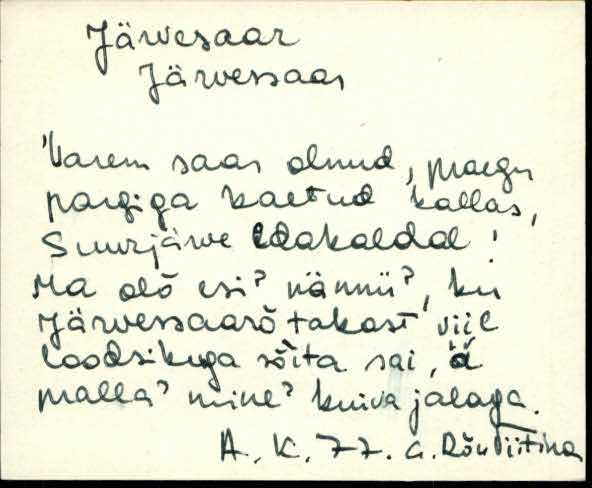 Järvesaar
Järvessaar
'Varem saar olnud, praegu
pargiga kaetud kallas,
Suurjärve edakaldal!
Ma olõ esi? nännü?, ku
Järvessaarõ takast viil
loodsikuga sõita sai, a
malla? mine? kuiva jalaga.
A. K. 77. a.